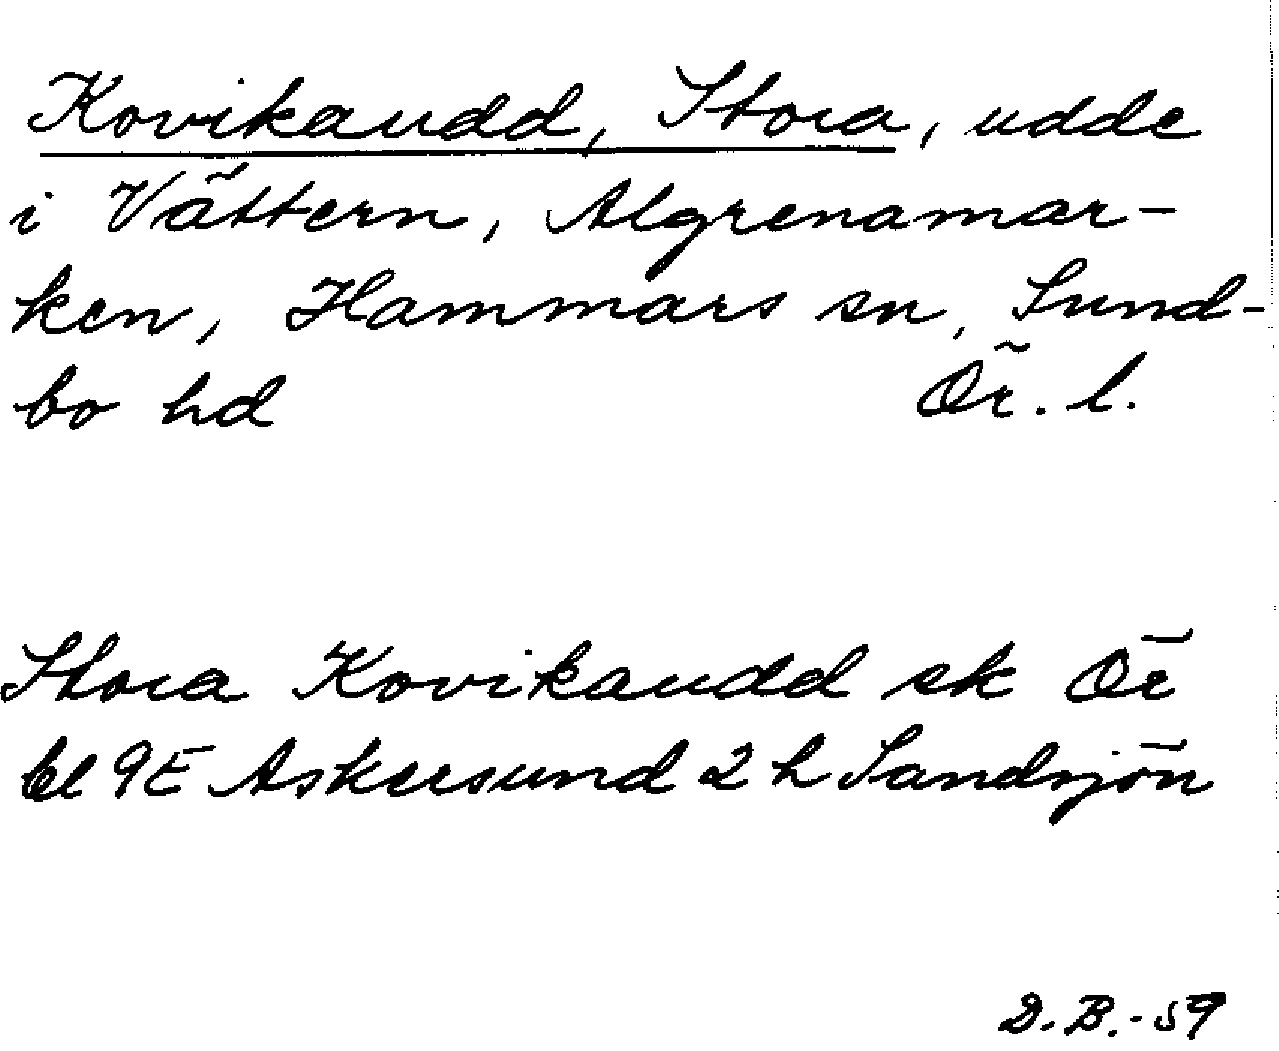 Kovikaudd, Stora, udde
i Vättern, Algrenamar-
ken, Hammars sn, Sund-
bo hd Ör. l.
Stora Kovikaudd ek Ör
bl 9E Askersund 2 h Sandsjön
D.B.-59